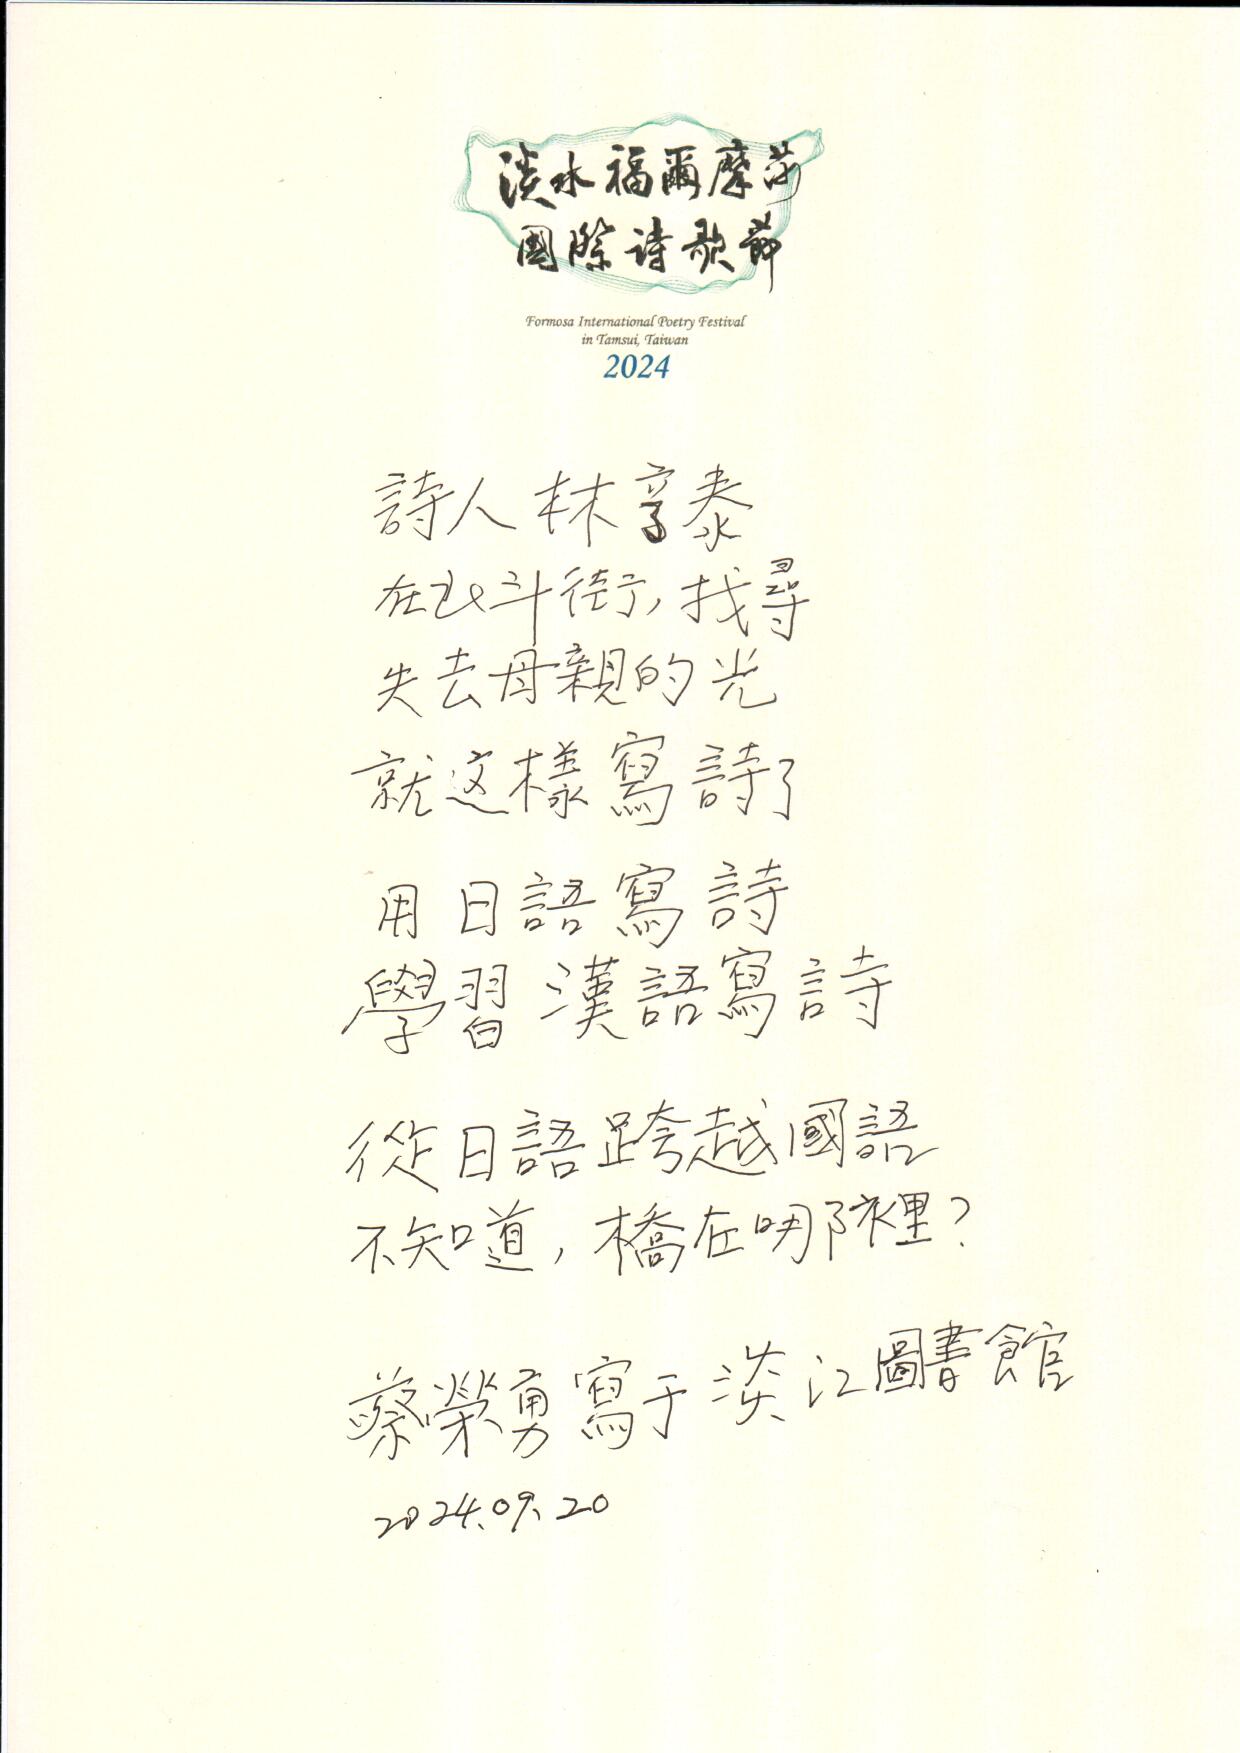 淡水福爾摩莎
國際詩歌節
Formosa International Poetry Festival
in Tamsui, Taiwan
2024
詩人林亨泰
在北斗街，找尋
失去母親的光
就這樣寫詩了
用日語寫詩
學習漢語寫詩
從日語跨越國語
不知道，橋在哪裡？
蔡榮勇寫于淡江圖書館
2024.09.20